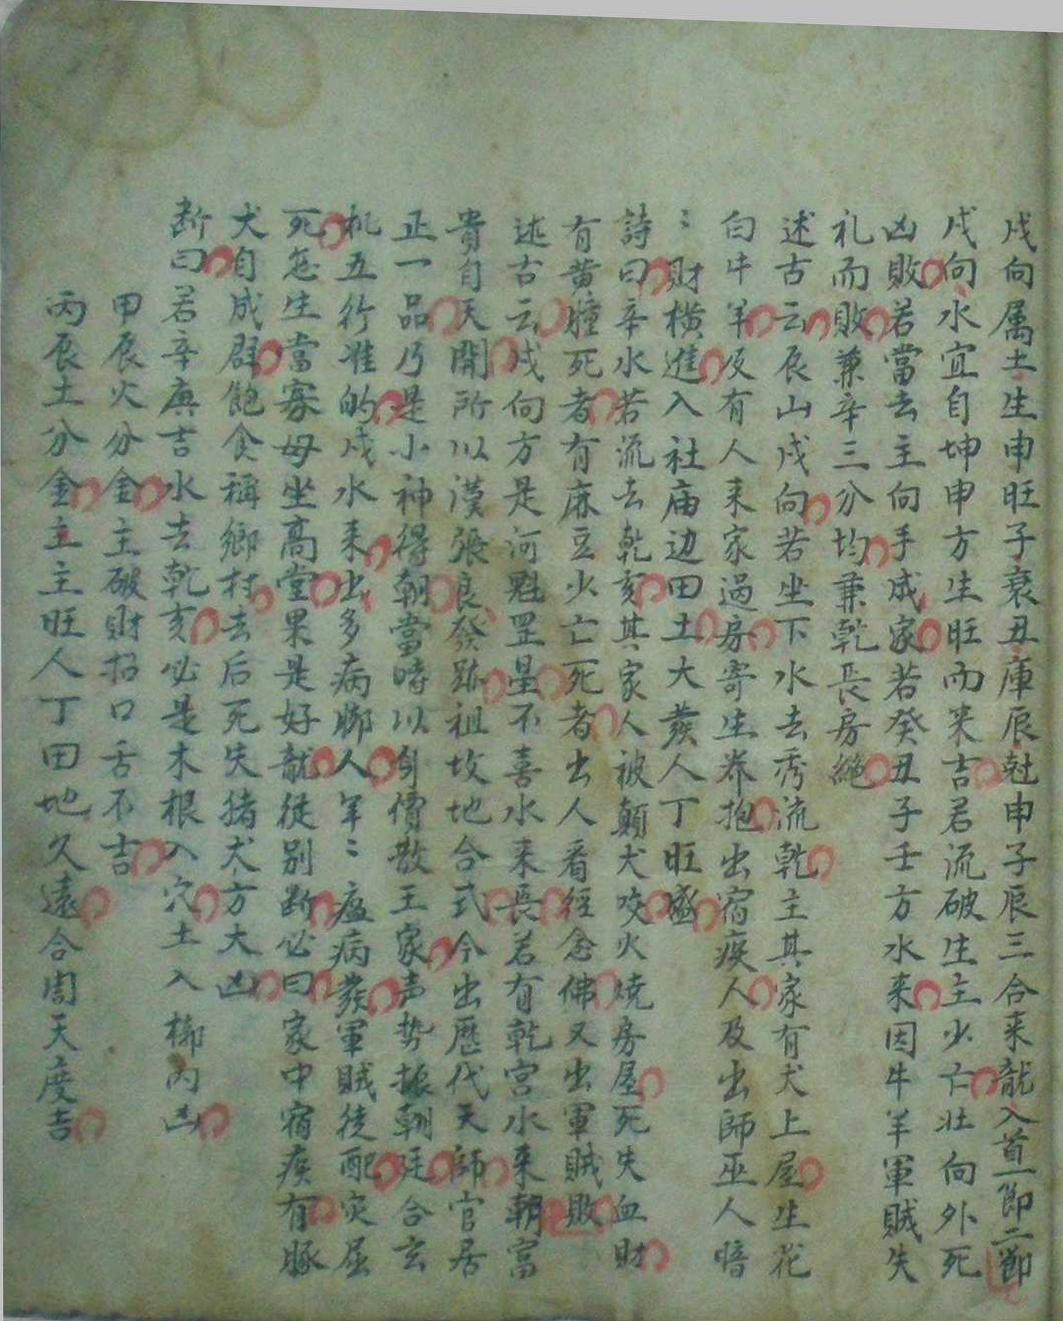 戍向属土生申旺子衰丑庫辰尅申子辰三合来龍入首一節二節
戍向水宜自坤申方生旺而来吉君流破生主少亡壮向外死
凶敗若當去主向手成家若癸丑子壬方水来因牛羊軍賊失
礼而敗兼辛三分均兼乾長房絕
述古云辰山戍向若坐下水去秀流乾主其家有犬上屋生花
白牛羊及有人来家過房寄生养抱出宿疾人及出師巫人暗
〻財橫進入社庙边田土大發人丁旺盛
詩曰辛水若流去乾亥其家人被顛犬咬火燒房屋死失血財
有黄腫死者有麻豆少亡死者出人看経念佛又出軍賊敗
述古云戍向方是河魁罡星不喜水来長若有乾宮水来朝富
貴自天開所以漢張良發跡祖坟地合式今出歷代天師官居
正一品乃是小神得朝當時以 僧散王家声势振朝廷合玄
机五行准的戍水来出多病腳人年〻瘟病發軍賊徒配灾屈
死怎生當寡母坐高堂果是好龍徒别断必曰家中宿疾有豚
犬自成群飽食稱鄉村去后死失猪犬方大凶
断曰若辛庚吉水去乾亥必是木根入穴土入槨内凶
甲辰火分金主破財招口舌不吉
丙辰土分金主主旺人丁田地久遠合周天度吉